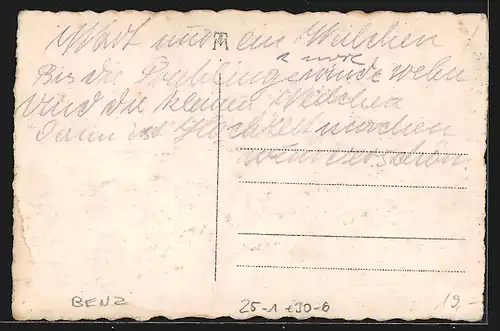 Wart nur ein Weilchen
Bis die Frühlingswinde wehn
Und die kleinen Veilchen
Dann ist Hochzeit machen
wunderschön
BENZ
25-1 +30-6
19,-